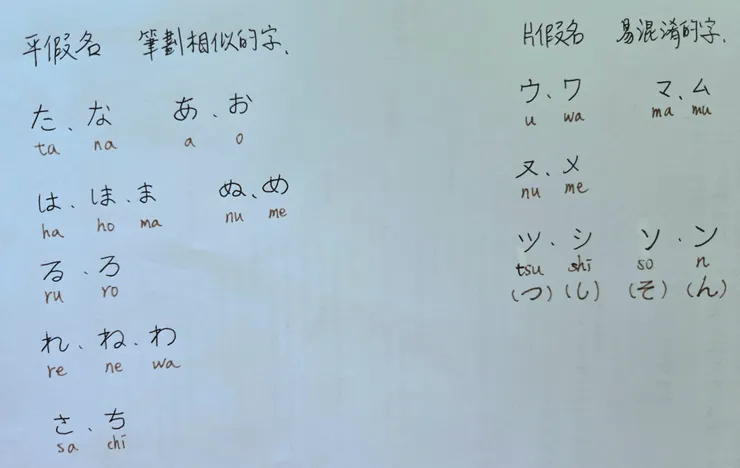 平假名 筆劃相似的字.
た、な あ、お
ta na a o
は、ほ、ま ぬ、め
ha ho ma nu me
る、ろ
ru ro
れ、ね、わ
re ne wa
さ、ち
sa chi
片假名 易混淆的字.
ウ、ワ マ、ム
u wa ma mu
ヌ、メ
nu me
ツ、シ ソ、ン
tsu shi so n
(つ) (し) (そ) (ん)